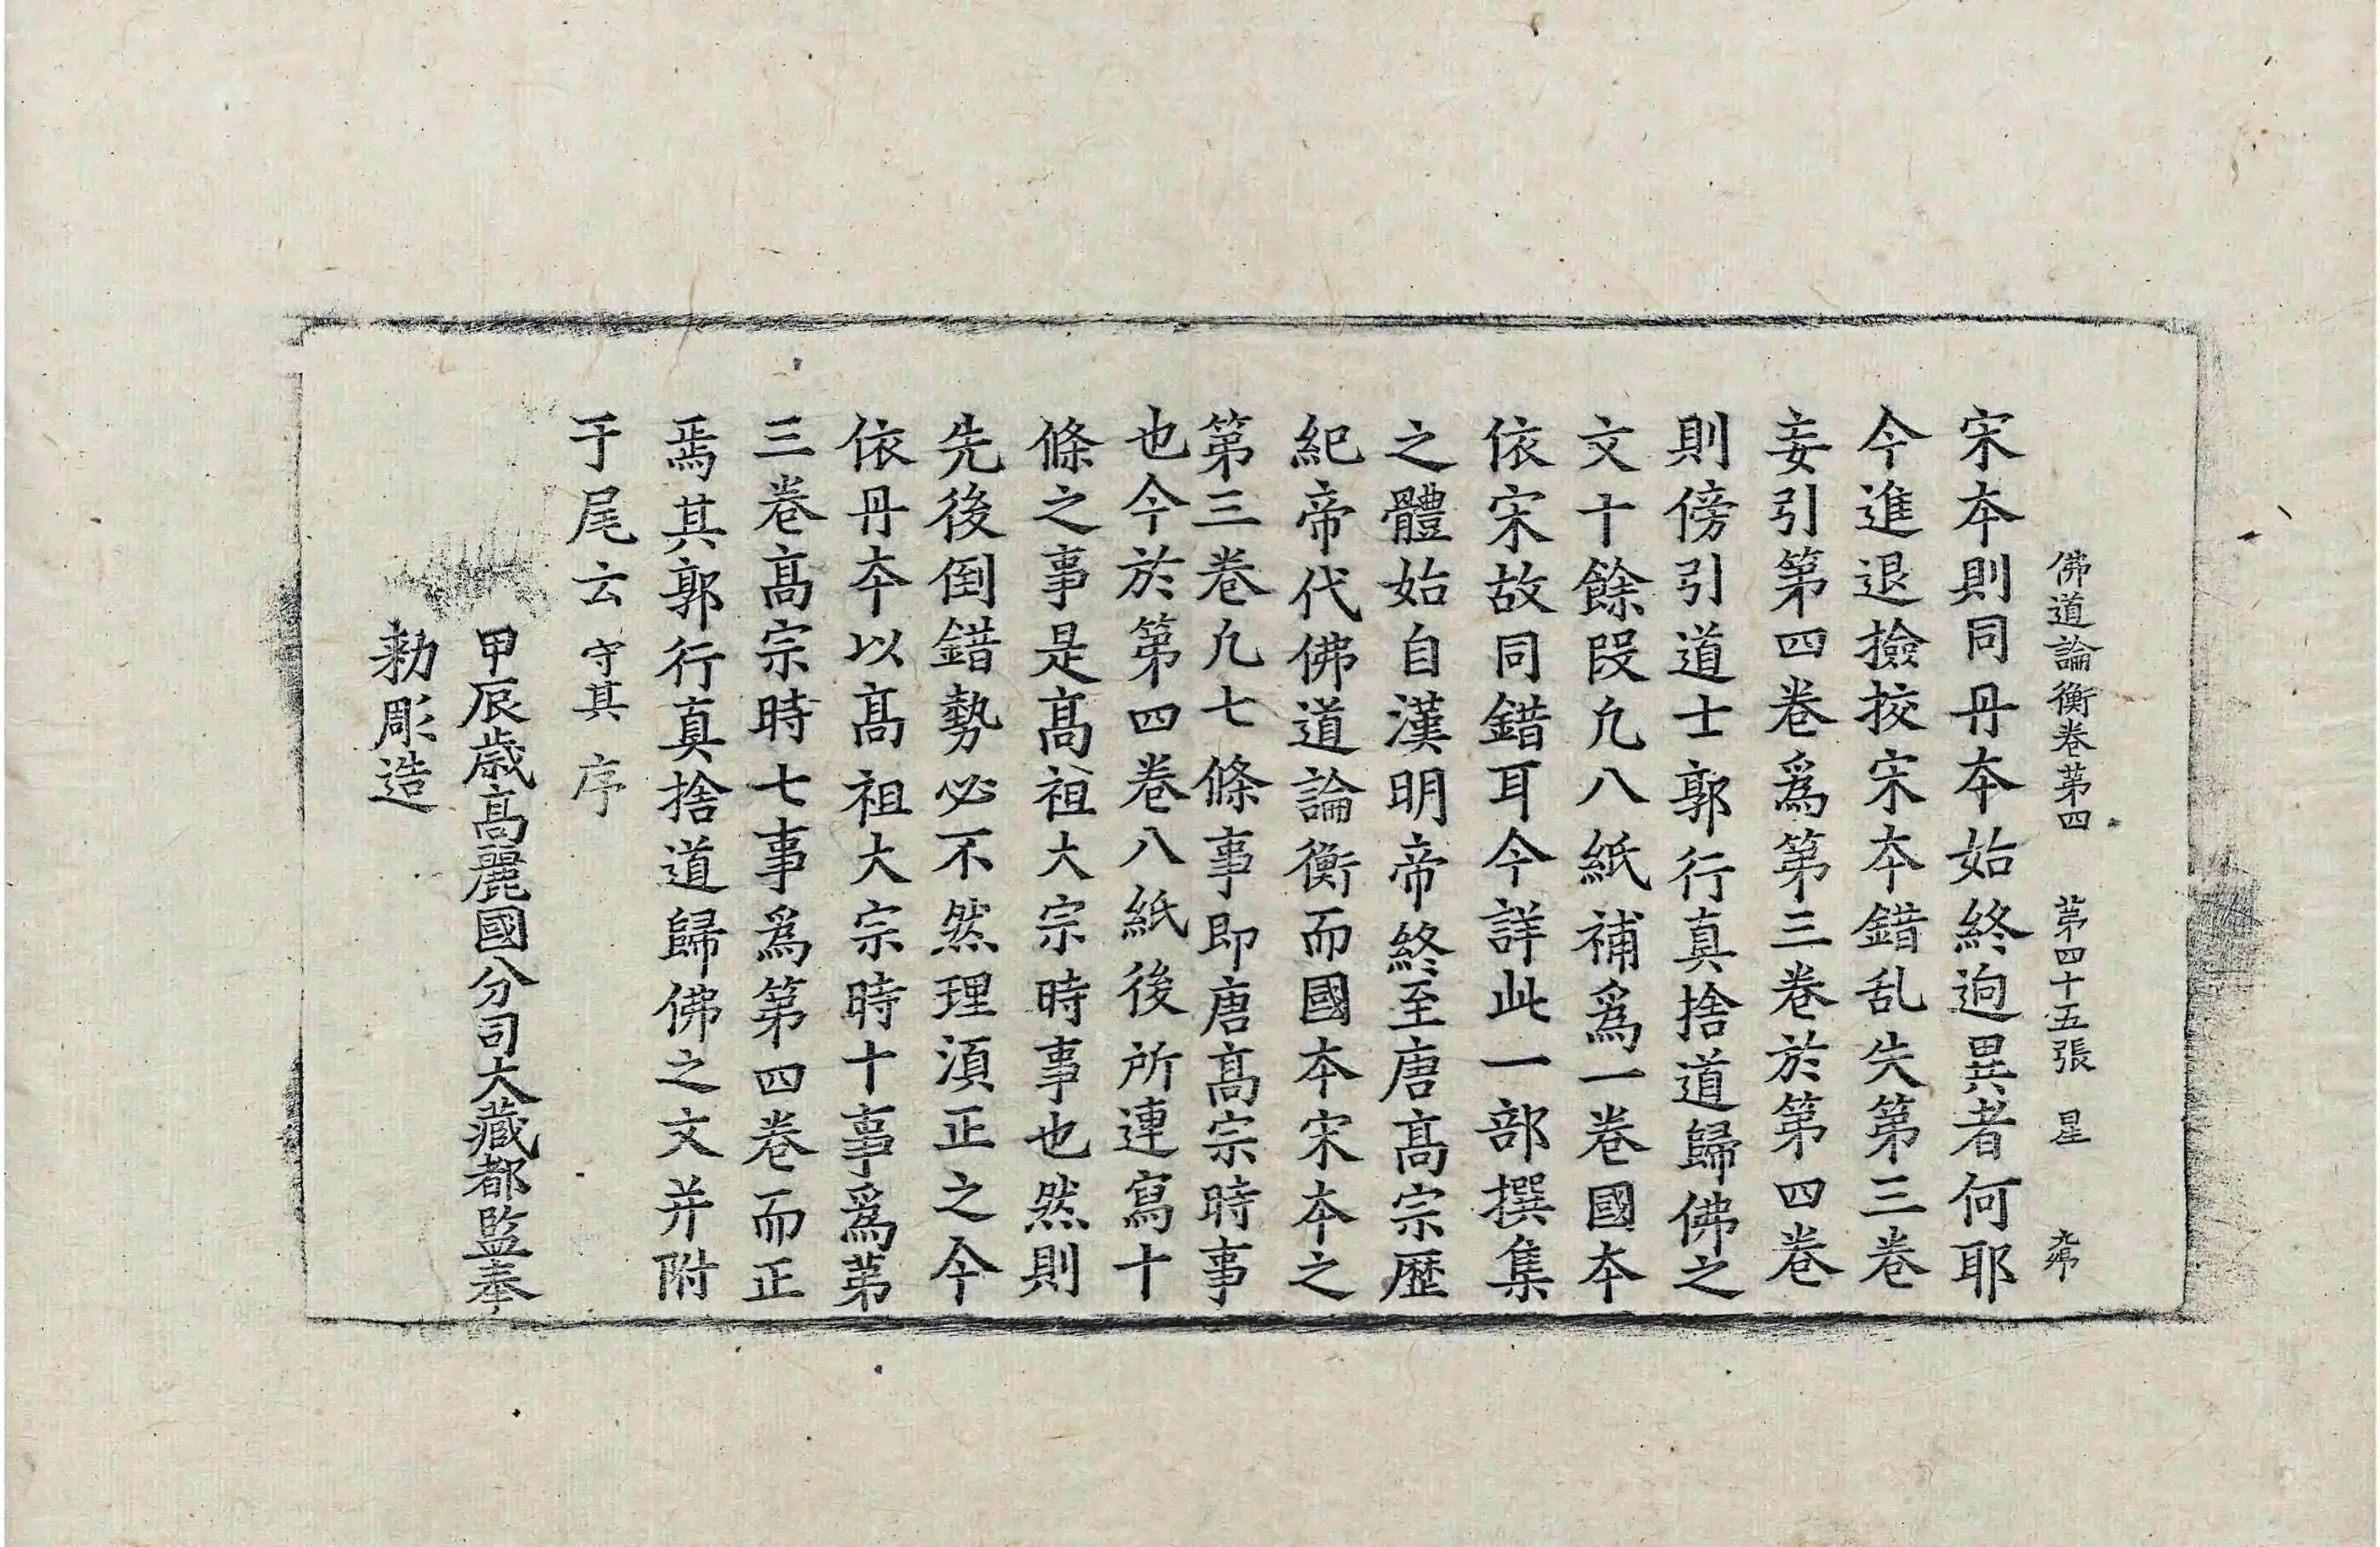 佛道論衡卷苐四　苐四十五張　星
宋夲則同丹夲始終逈異者何耶
今進退撿挍宋夲錯乱失第三卷
妄引第四卷爲第三卷於第四卷
則傍引道士郭行真捨道歸佛之
文十餘段凢八紙補爲一卷國夲
依宋故同錯耳今詳此一部撰集
之體始自漢明帝終至唐髙宗歷
紀帝代佛道論衡而國夲宋夲之
第三卷凢七條事即唐髙宗時事
也今於第四卷八紙後所連寫十
條之事是髙祖大宗時事也然則
先後倒錯勢必不然理湏正之今
依丹夲以髙祖大宗時十事爲苐
三卷髙宗時七事爲第四卷而正
焉其郭行真捨道歸佛之文并附
于尾云守其序
甲辰歳高麗國分司大藏都監奉
勑彫造